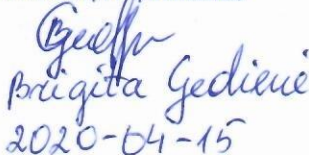 Brigita Gedienė
2020-04-15